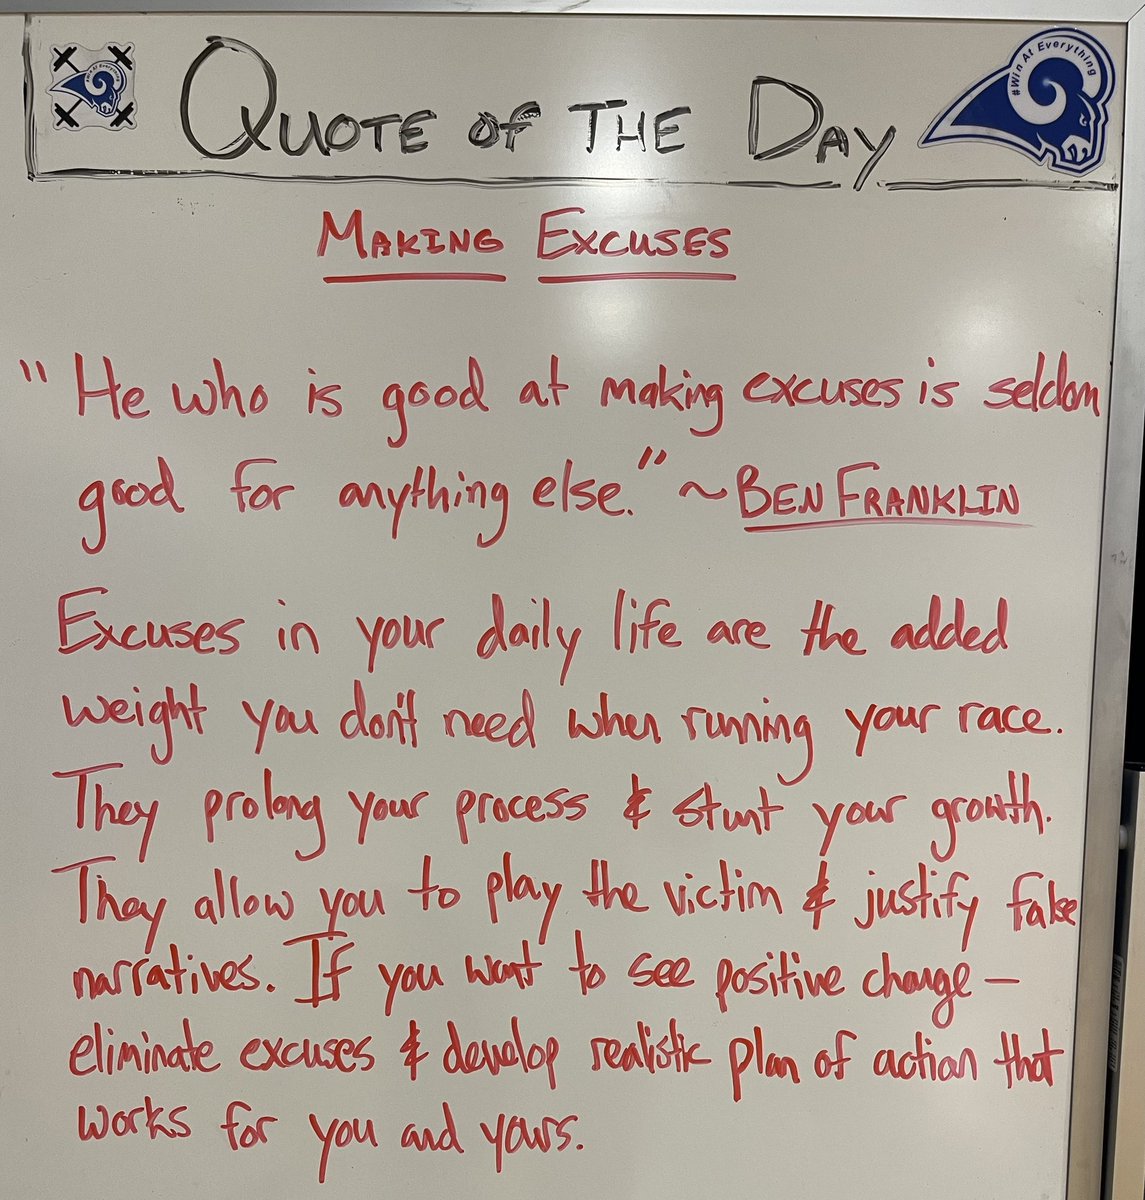 #Win At Everything
QUOTE OF THE DAY
#Win At Everything
MAKING EXCUSES
"He who is good at making excuses is seldom
good for anything else." ~ BEN FRANKLIN
Excuses in your daily life are the added
weight you don't need when running your race.
They prolong your process & stunt your growth.
They allow you to play the victim & justify false
narratives. If you want to see positive change –
eliminate excuses & develop realistic plan of action that
works for you and yours.